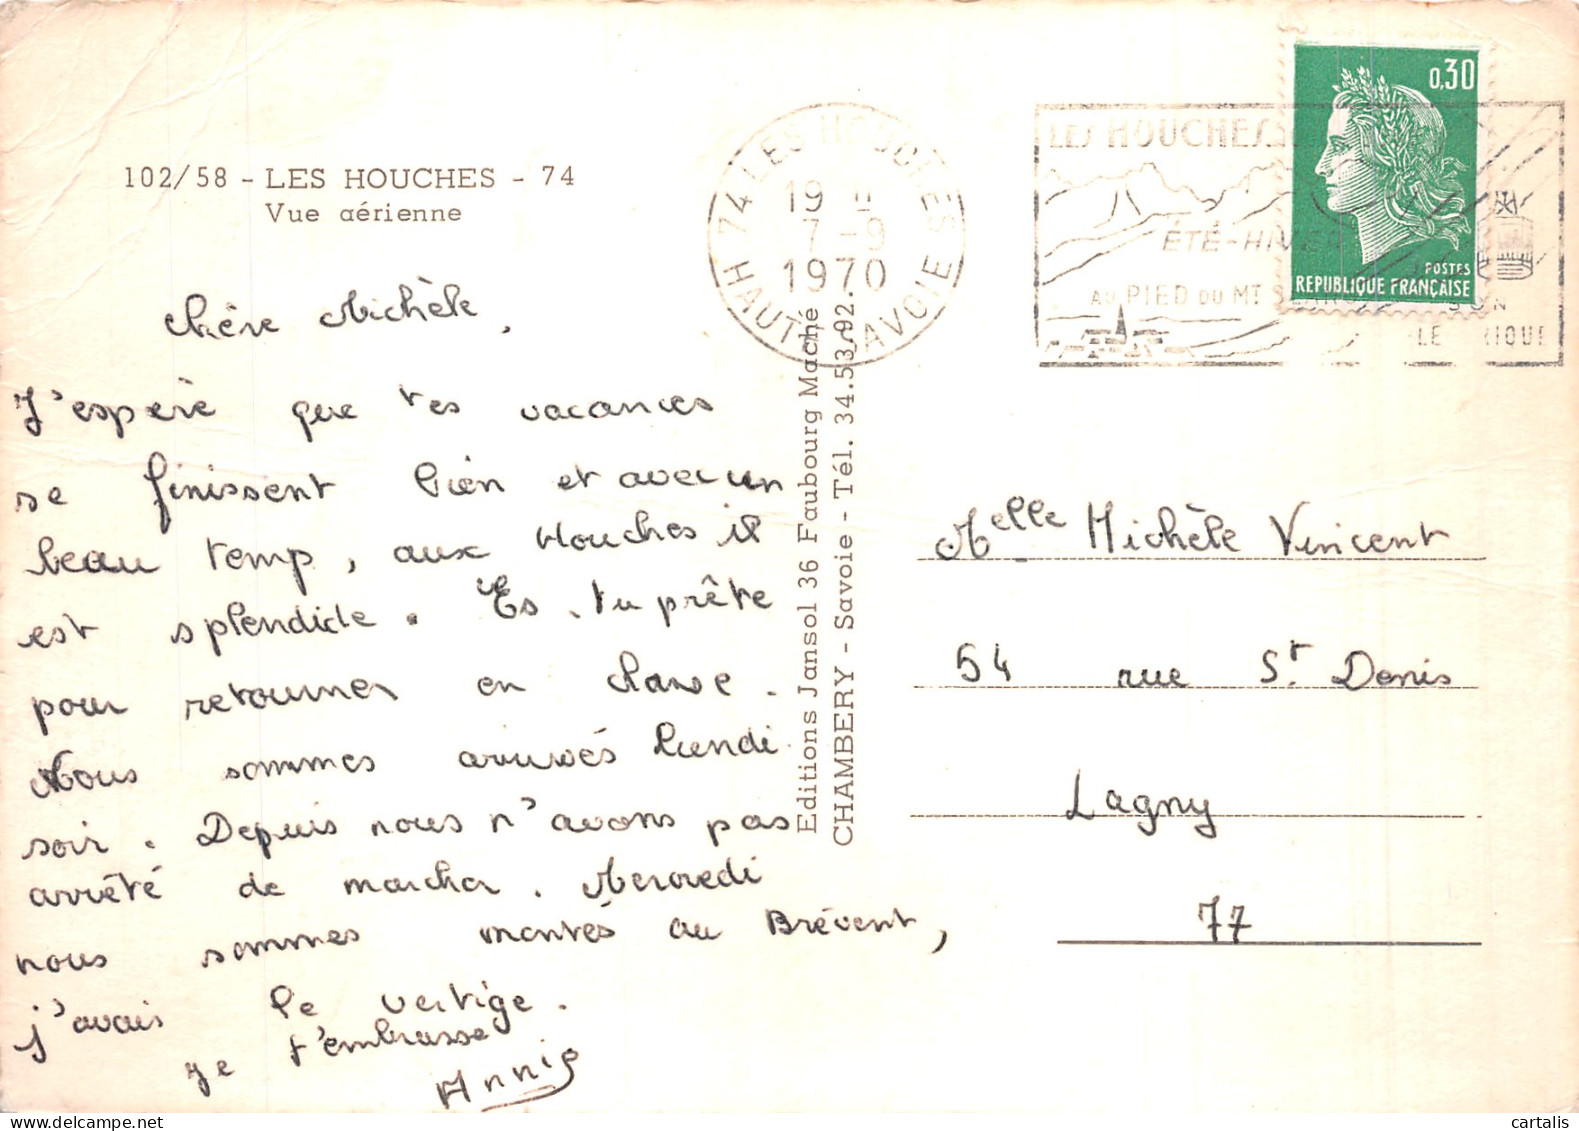 102/58 - LES HOUCHES - 74
Vue aérienne
Chère Michèle,
J'espère que tes vacances
se finissent bien et avec un
beau temp, aux Houches il
est splendide. Es-tu prête
pour retourner en classe.
Nous sommes arrivés lundi
soir. Depuis nous n'avons pas
arrêté de marcher. Mercredi
nous sommes montés au Brévent,
j'avais le vertige.
Je t'embrasse
Annie
Editions Jansol 36 Faubourg Maché
CHAMBERY - Savoie - Tél. 34.53.92.
74 LES HOUCHES
19 H
7-9
1970
HAUTE SAVOIE
LES HOUCHES
ÉTÉ-HIVER
AU PIED DU MT
SON
0,30
POSTES
REPUBLIQUE FRANÇAISE
Melle Michèle Vincent
54 rue St. Denis
Lagny
77
cartalis